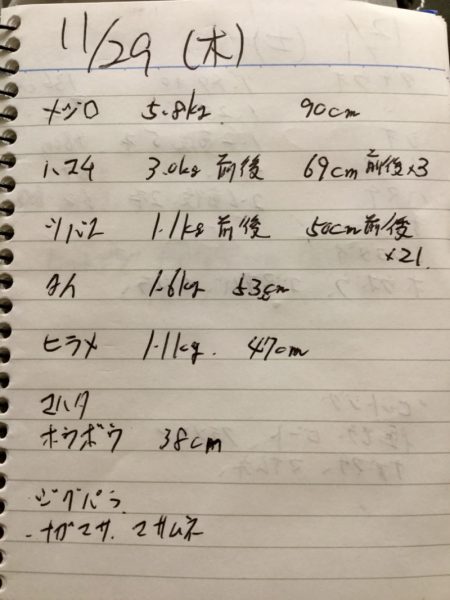 11/29 (木)
メジロ 5.8kg 90cm
ハマチ 3.0kg 前後 69cm 前後×3
ツバス 1.1kg 前後 50cm前後
×21
タイ 1.6kg 53cm
ヒラメ 1.1kg. 47cm
マハタ
ホウボウ 38cm
ジグパラ
ナガマサ. マサムネ